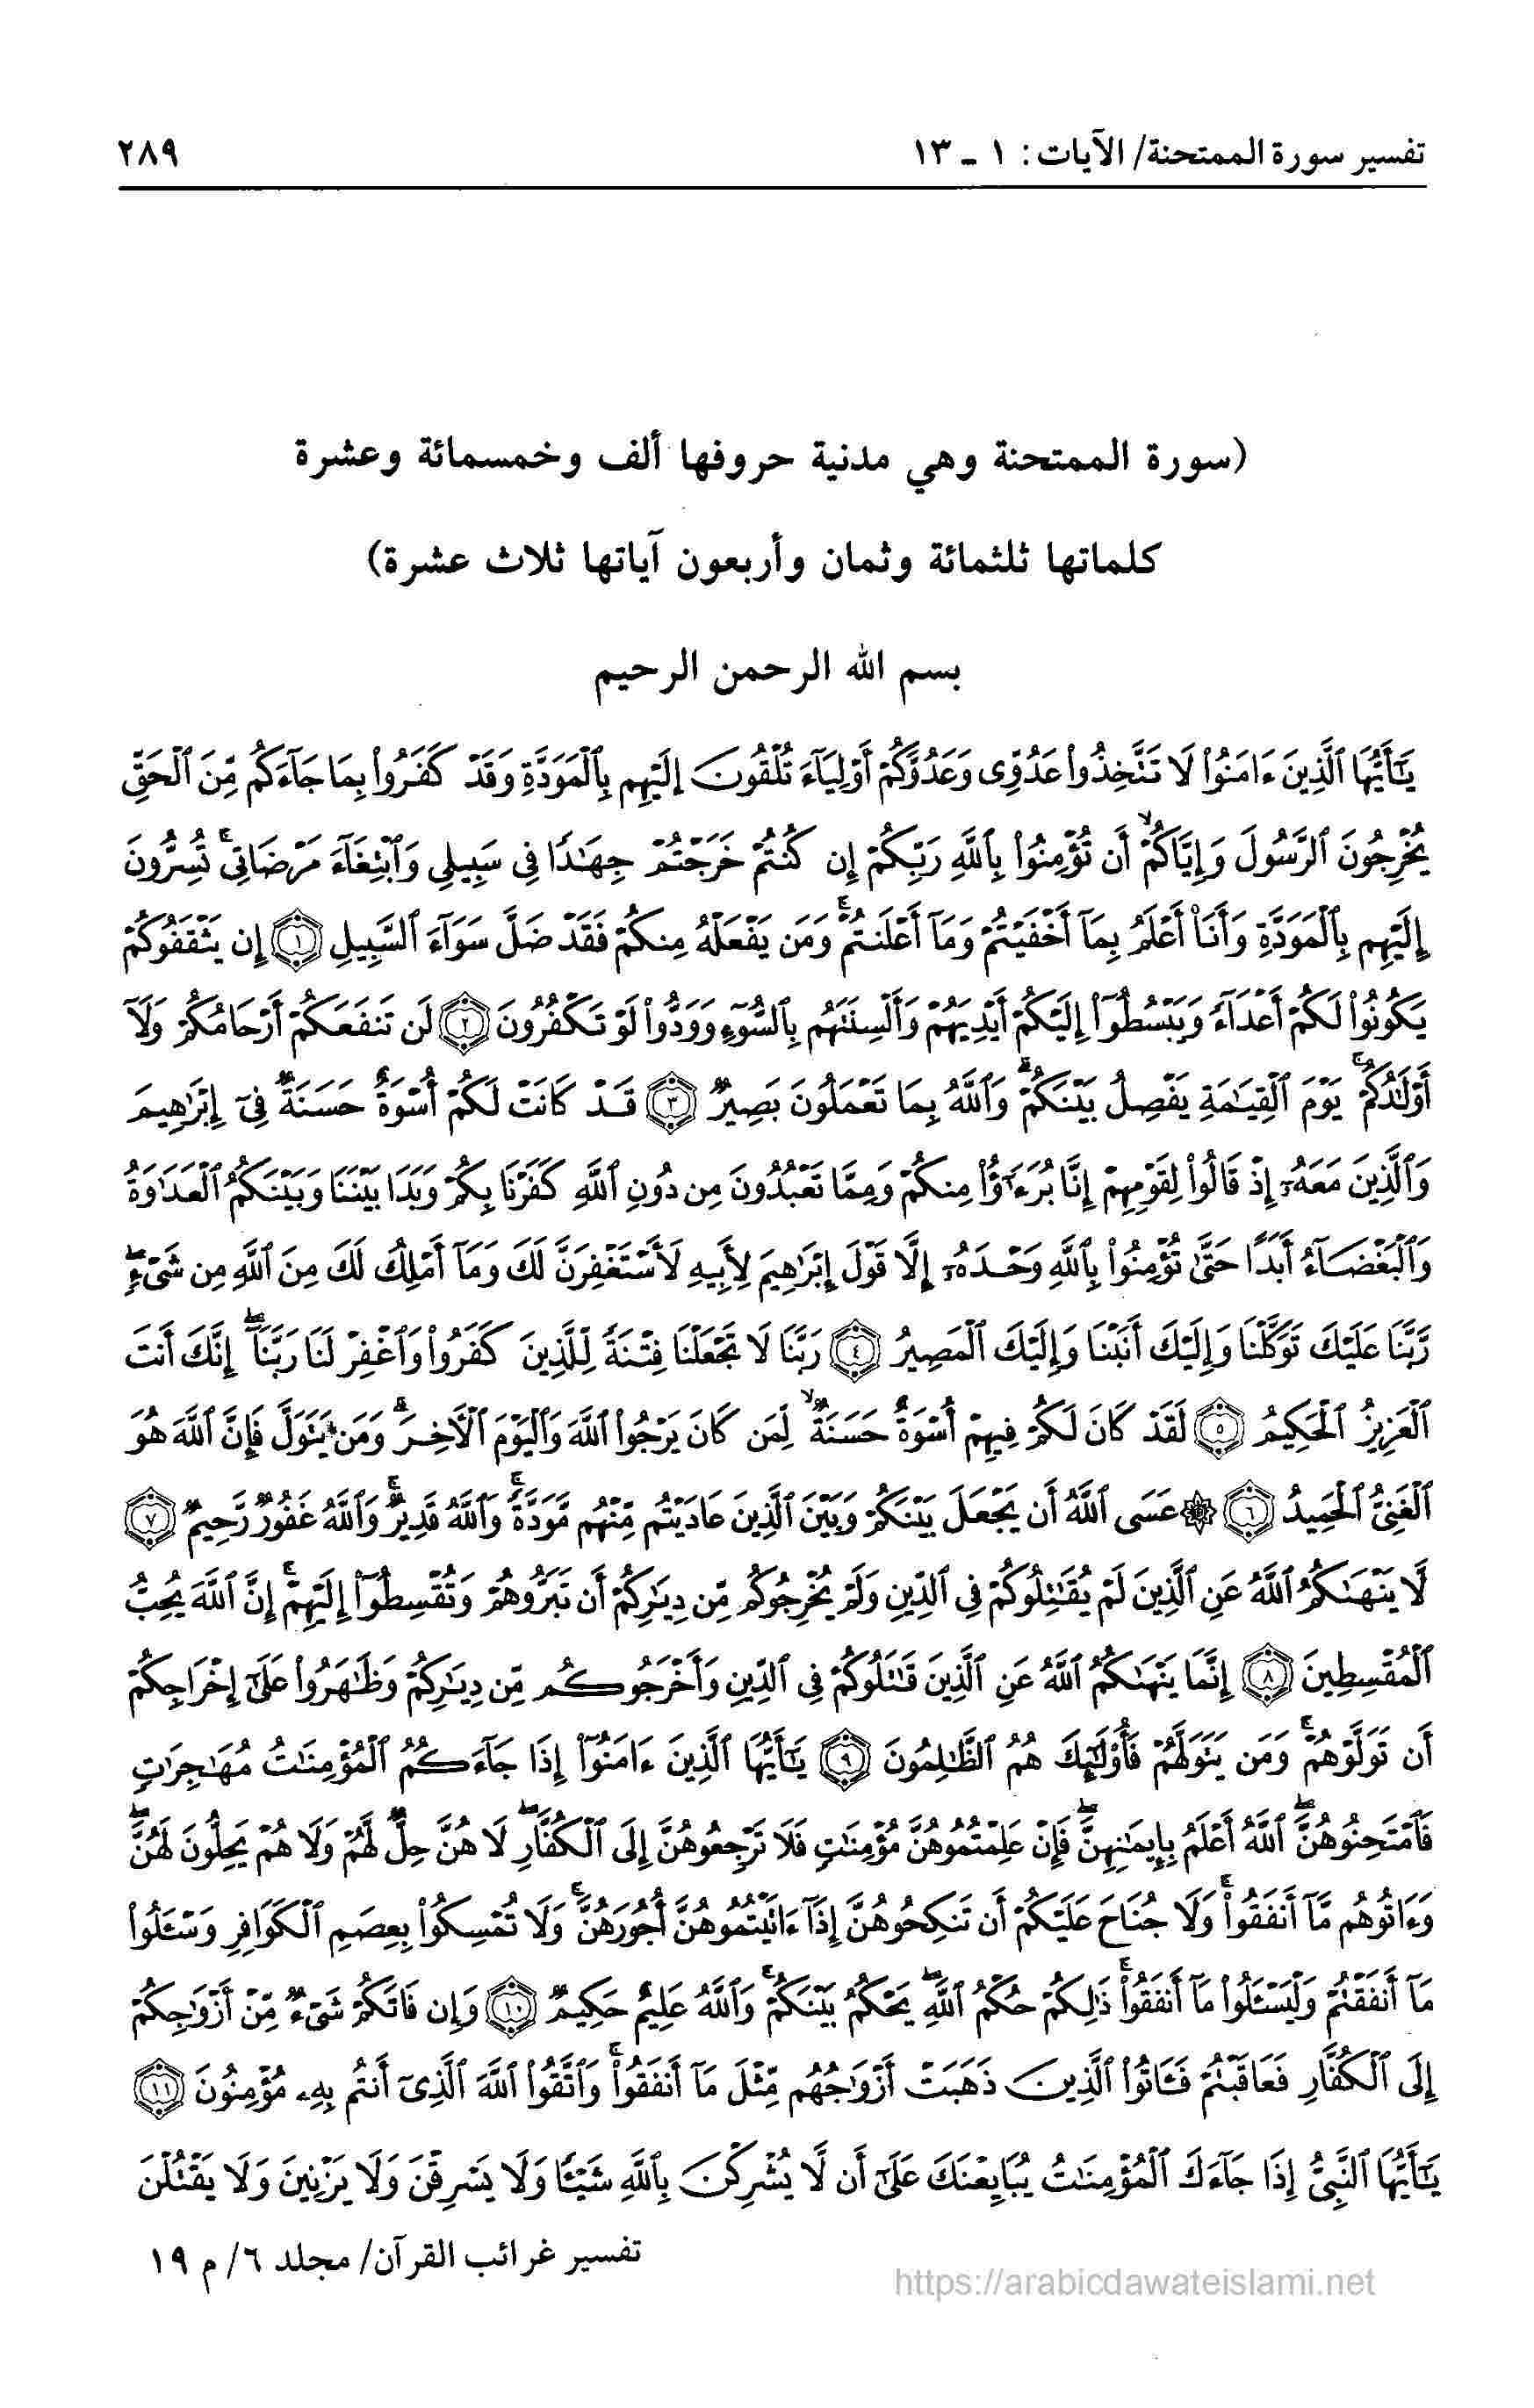 تفسير سورة الممتحنة/ الآيات: ١ ـ ١٣
٢٨٩
(سورة الممتحنة وهي مدنية حروفها ألف وخمسمائة وعشرة
كلماتها ثلثمائة وثمان وأربعون آياتها ثلاث عشرة)
بسم الله الرحمن الرحيم
يَٰٓأَيُّهَا ٱلَّذِينَ ءَامَنُوا۟ لَا تَتَّخِذُوا۟ عَدُوِّى وَعَدُوَّكُمْ أَوْلِيَآءَ تُلْقُونَ إِلَيْهِم بِٱلْمَوَدَّةِ وَقَدْ كَفَرُوا۟ بِمَا جَآءَكُم مِّنَ ٱلْحَقِّ
يُخْرِجُونَ ٱلرَّسُولَ وَإِيَّاكُمْ ۙ أَن تُؤْمِنُوا۟ بِٱللَّهِ رَبِّكُمْ إِن كُنتُمْ خَرَجْتُمْ جِهَٰدًا فِى سَبِيلِى وَٱبْتِغَآءَ مَرْضَاتِى ۚ تُسِرُّونَ
إِلَيْهِم بِٱلْمَوَدَّةِ وَأَنَا۠ أَعْلَمُ بِمَآ أَخْفَيْتُمْ وَمَآ أَعْلَنتُمْ ۚ وَمَن يَفْعَلْهُ مِنكُمْ فَقَدْ ضَلَّ سَوَآءَ ٱلسَّبِيلِ ١ إِن يَثْقَفُوكُمْ
يَكُونُوا۟ لَكُمْ أَعْدَآءً وَيَبْسُطُوٓا۟ إِلَيْكُمْ أَيْدِيَهُمْ وَأَلْسِنَتَهُم بِٱلسُّوٓءِ وَوَدُّوا۟ لَوْ تَكْفُرُونَ ٢ لَن تَنفَعَكُمْ أَرْحَامُكُمْ وَلَآ
أَوْلَٰدُكُمْ ۚ يَوْمَ ٱلْقِيَٰمَةِ يَفْصِلُ بَيْنَكُمْ ۚ وَٱللَّهُ بِمَا تَعْمَلُونَ بَصِيرٌ ٣ قَدْ كَانَتْ لَكُمْ أُسْوَةٌ حَسَنَةٌ فِىٓ إِبْرَٰهِيمَ
وَٱلَّذِينَ مَعَهُۥٓ إِذْ قَالُوا۟ لِقَوْمِهِمْ إِنَّا بُرَءَٰٓؤُا۟ مِنكُمْ وَمِمَّا تَعْبُدُونَ مِن دُونِ ٱللَّهِ كَفَرْنَا بِكُمْ وَبَدَا بَيْنَنَا وَبَيْنَكُمُ ٱلْعَدَٰوَةُ
وَٱلْبَغْضَآءُ أَبَدًا حَتَّىٰ تُؤْمِنُوا۟ بِٱللَّهِ وَحْدَهُۥٓ إِلَّا قَوْلَ إِبْرَٰهِيمَ لِأَبِيهِ لَأَسْتَغْفِرَنَّ لَكَ وَمَآ أَمْلِكُ لَكَ مِنَ ٱللَّهِ مِن شَىْءٍ ۖ
رَّبَّنَا عَلَيْكَ تَوَكَّلْنَا وَإِلَيْكَ أَنَبْنَا وَإِلَيْكَ ٱلْمَصِيرُ ٤ رَبَّنَا لَا تَجْعَلْنَا فِتْنَةً لِّلَّذِينَ كَفَرُوا۟ وَٱغْفِرْ لَنَا رَبَّنَآ ۖ إِنَّكَ أَنتَ
ٱلْعَزِيزُ ٱلْحَكِيمُ ٥ لَقَدْ كَانَ لَكُمْ فِيهِمْ أُسْوَةٌ حَسَنَةٌ ۙ لِّمَن كَانَ يَرْجُوا۟ ٱللَّهَ وَٱلْيَوْمَ ٱلْءَاخِرَ ۚ وَمَن يَتَوَلَّ فَإِنَّ ٱللَّهَ هُوَ
ٱلْغَنِىُّ ٱلْحَمِيدُ ٦ ۞ عَسَى ٱللَّهُ أَن يَجْعَلَ بَيْنَكُمْ وَبَيْنَ ٱلَّذِينَ عَادَيْتُم مِّنْهُم مَّوَدَّةً ۚ وَٱللَّهُ قَدِيرٌ ۚ وَٱللَّهُ غَفُورٌ رَّحِيمٌ ٧
لَّا يَنْهَىٰكُمُ ٱللَّهُ عَنِ ٱلَّذِينَ لَمْ يُقَٰتِلُوكُمْ فِى ٱلدِّينِ وَلَمْ يُخْرِجُوكُم مِّن دِيَٰرِكُمْ أَن تَبَرُّوهُمْ وَتُقْسِطُوٓا۟ إِلَيْهِمْ ۚ إِنَّ ٱللَّهَ يُحِبُّ
ٱلْمُقْسِطِينَ ٨ إِنَّمَا يَنْهَىٰكُمُ ٱللَّهُ عَنِ ٱلَّذِينَ قَٰتَلُوكُمْ فِى ٱلدِّينِ وَأَخْرَجُوكُم مِّن دِيَٰرِكُمْ وَظَٰهَرُوا۟ عَلَىٰٓ إِخْرَاجِكُمْ
أَن تَوَلَّوْهُمْ ۚ وَمَن يَتَوَلَّهُمْ فَأُو۟لَٰٓئِكَ هُمُ ٱلظَّٰلِمُونَ ٩ يَٰٓأَيُّهَا ٱلَّذِينَ ءَامَنُوٓا۟ إِذَا جَآءَكُمُ ٱلْمُؤْمِنَٰتُ مُهَٰجِرَٰتٍ
فَٱمْتَحِنُوهُنَّ ۖ ٱللَّهُ أَعْلَمُ بِإِيمَٰنِهِنَّ ۖ فَإِنْ عَلِمْتُمُوهُنَّ مُؤْمِنَٰتٍ فَلَا تَرْجِعُوهُنَّ إِلَى ٱلْكُفَّارِ ۖ لَا هُنَّ حِلٌّ لَّهُمْ وَلَا هُمْ يَحِلُّونَ لَهُنَّ ۖ
وَءَاتُوهُم مَّآ أَنفَقُوا۟ ۚ وَلَا جُنَاحَ عَلَيْكُمْ أَن تَنكِحُوهُنَّ إِذَآ ءَاتَيْتُمُوهُنَّ أُجُورَهُنَّ ۚ وَلَا تُمْسِكُوا۟ بِعِصَمِ ٱلْكَوَافِرِ وَسْـَٔلُوا۟
مَآ أَنفَقْتُمْ وَلْيَسْـَٔلُوا۟ مَآ أَنفَقُوا۟ ۚ ذَٰلِكُمْ حُكْمُ ٱللَّهِ ۖ يَحْكُمُ بَيْنَكُمْ ۚ وَٱللَّهُ عَلِيمٌ حَكِيمٌ ١٠ وَإِن فَاتَكُمْ شَىْءٌ مِّنْ أَزْوَٰجِكُمْ
إِلَى ٱلْكُفَّارِ فَعَاقَبْتُمْ فَـَٔاتُوا۟ ٱلَّذِينَ ذَهَبَتْ أَزْوَٰجُهُم مِّثْلَ مَآ أَنفَقُوا۟ ۚ وَٱتَّقُوا۟ ٱللَّهَ ٱلَّذِىٓ أَنتُم بِهِۦ مُؤْمِنُونَ ١١
يَٰٓأَيُّهَا ٱلنَّبِىُّ إِذَا جَآءَكَ ٱلْمُؤْمِنَٰتُ يُبَايِعْنَكَ عَلَىٰٓ أَن لَّا يُشْرِكْنَ بِٱللَّهِ شَيْـًٔا وَلَا يَسْرِقْنَ وَلَا يَزْنِينَ وَلَا يَقْتُلْنَ
تفسير غرائب القرآن/ مجلد ٦/ م ١٩
https://arabicdawateislami.net